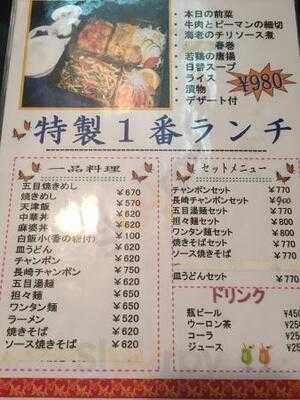 ・本日の前菜
・牛肉とピーマンの細切
・海老のチリソース煮
・春巻
・若鶏の唐揚
・日替スープ
・ライス
・漬物
・デザート付
¥980
特製1番ランチ
一品料理
五目焼きめし ¥670
焼きめし ¥570
天津飯 ¥570
中華丼 ¥620
麻婆丼 ¥620
白飯小(香の物付)
皿うどん ¥620
チャンポン ¥620
長崎チャンポン ¥750
五目湯麺 ¥620
担々麺 ¥650
ワンタン麺 ¥650
ラーメン ¥520
焼きそば ¥620
ソース焼きそば ¥620
セットメニュー
チャンポンセット ¥770
長崎チャンポンセット ¥900
五目湯麺セット ¥770
担々麺セット ¥800
ワンタン麺セット ¥800
焼きそばセット ¥770
ソース焼きそばセット ¥770
皿うどんセット ¥770
ドリンク
瓶ビール ¥450
ウーロン茶 ¥25
コーラ ¥25
ジュース ¥25